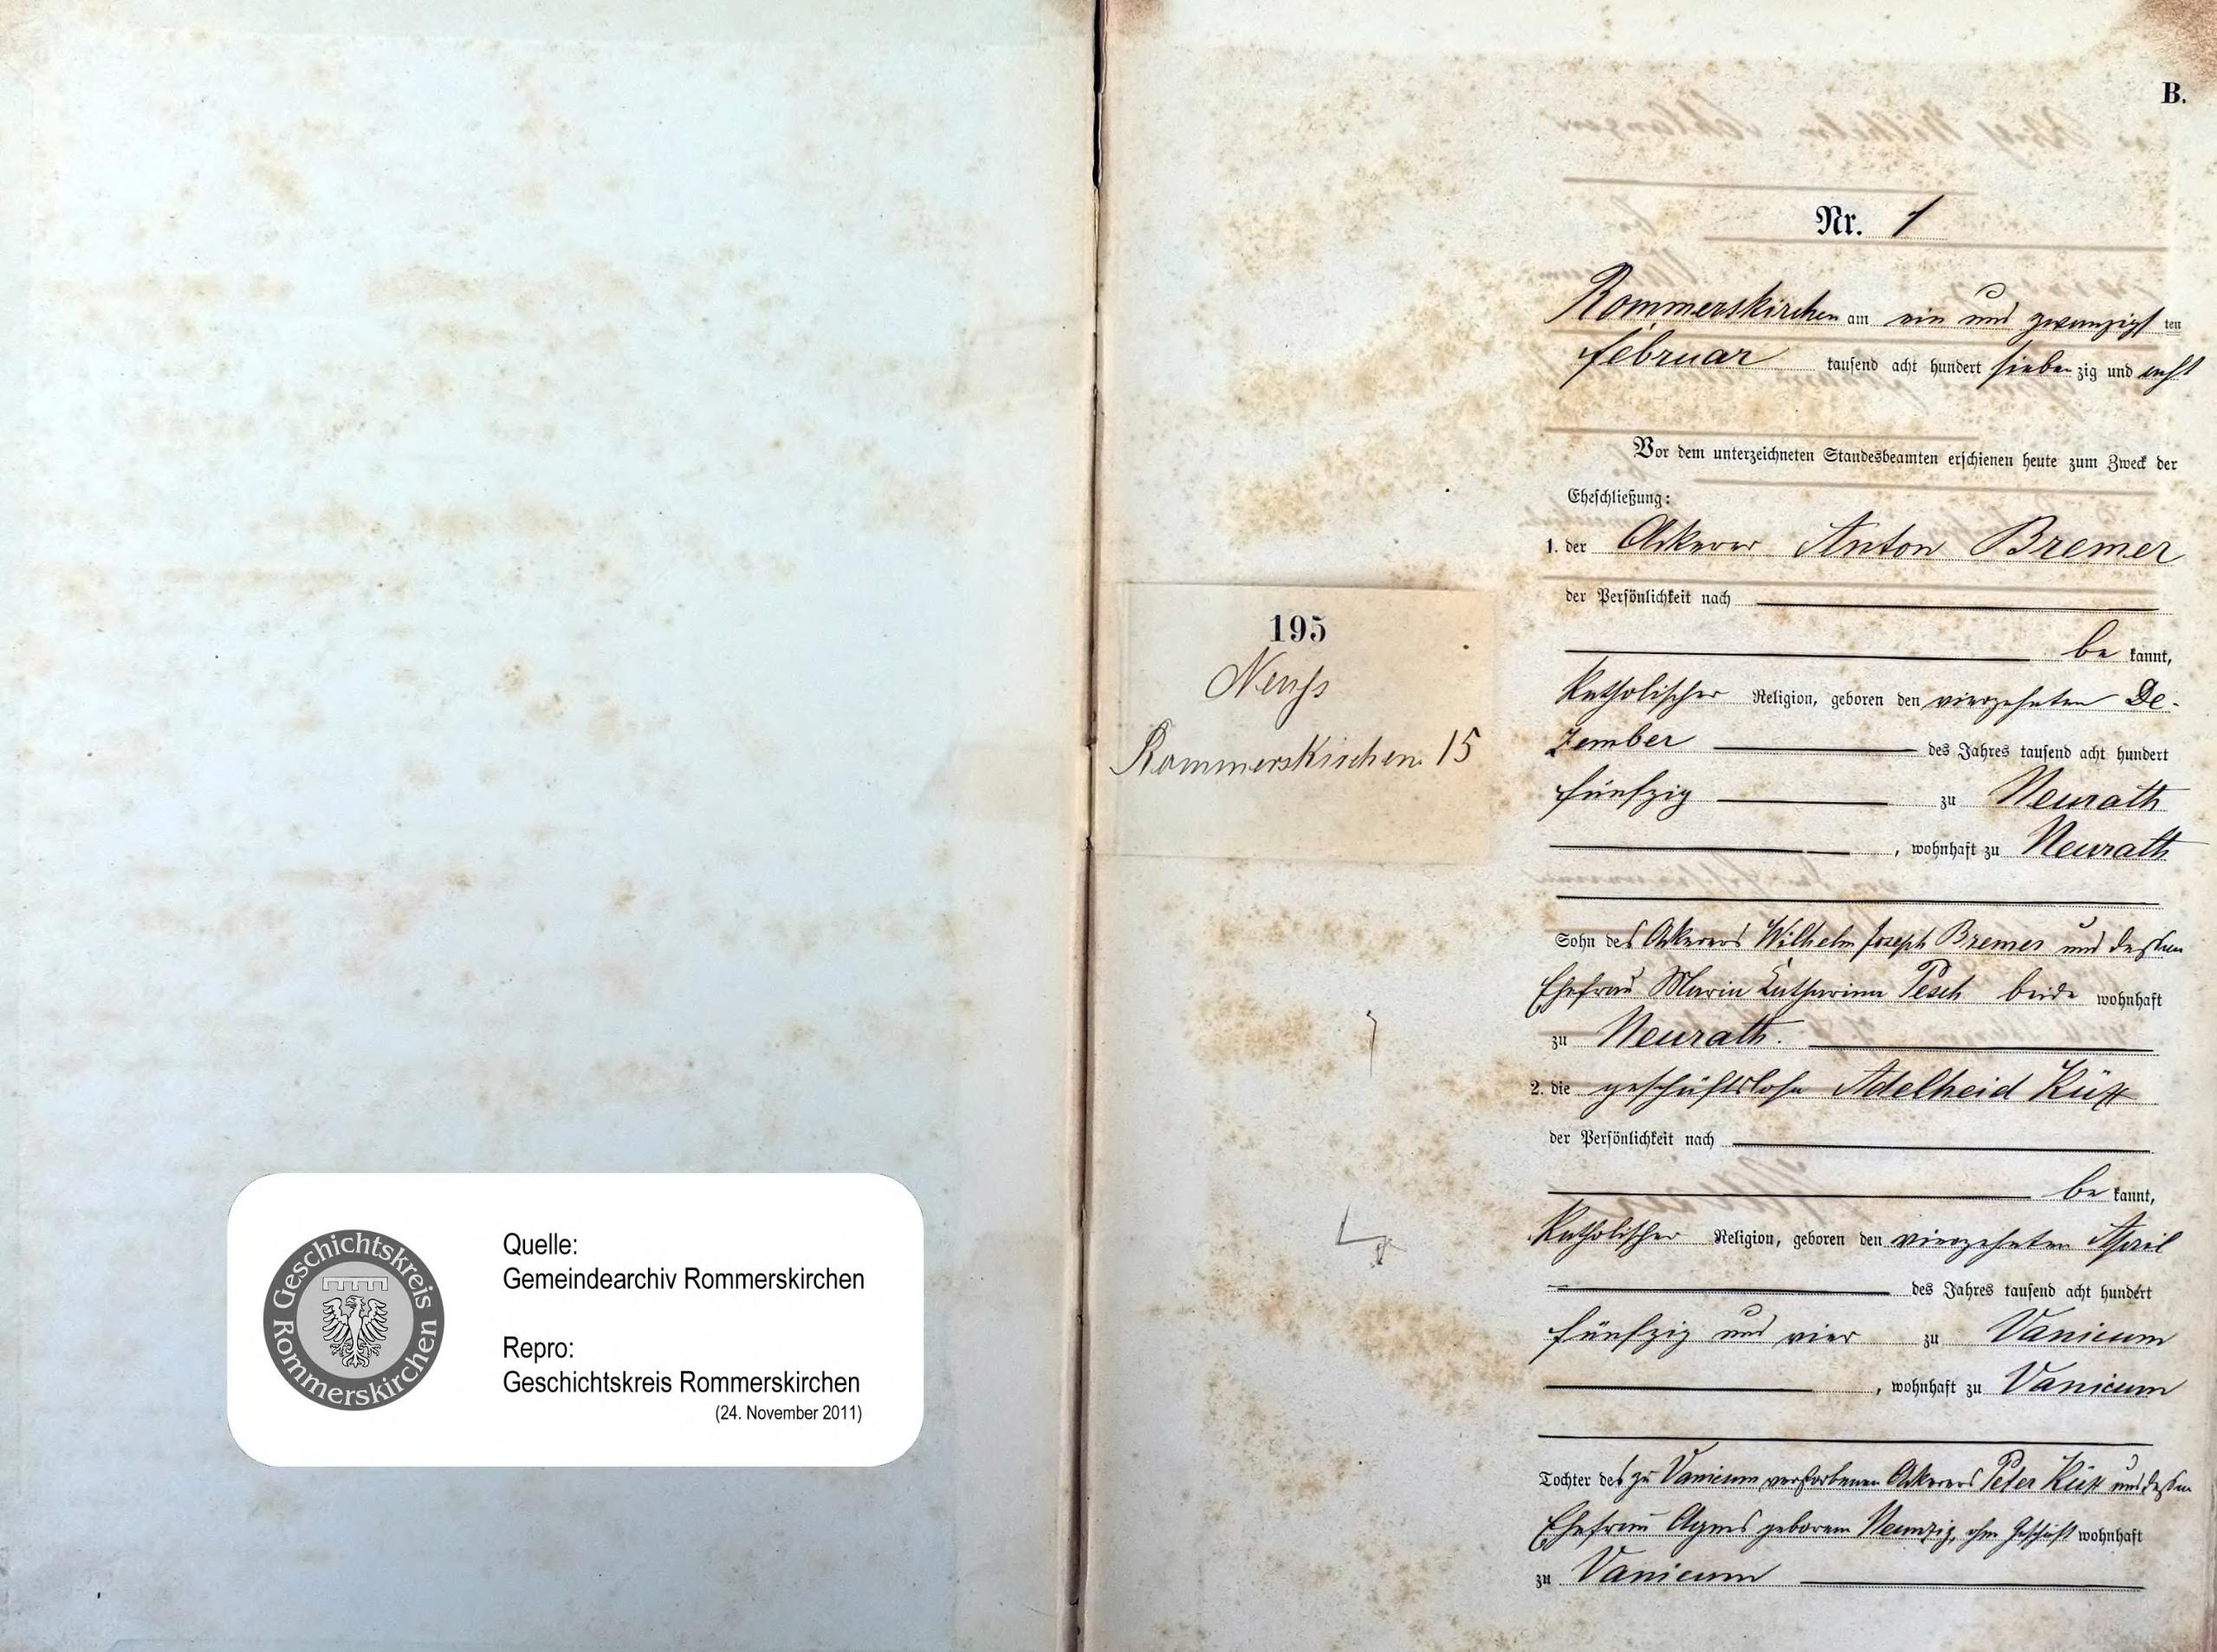 B.
Nr. 1
Rommerskirchen am ein und zwanzigsten
Februar tausend acht hundert siebenzig und acht
Vor dem unterzeichneten Standesbeamten erschienen heute zum Zweck der
Eheschließung:
1. der Ackerer Anton Bremer
der Persönlichkeit nach
be kannt,
katholischer Religion, geboren den vierzehnten De-
zember des Jahres tausend acht hundert
fünfzig zu Neurath
, wohnhaft zu Neurath
Sohn des Ackerers Wilhelm Joseph Bremer und dessen
Ehefrau Maria Catharina Pesch beide wohnhaft
zu Neurath.
2. die geschäftslose Adelheid
der Persönlichkeit nach
be kannt,
katholischer Religion, geboren den vierzehnten April
des Jahres tausend acht hundert
fünfzig und vier zu Vanicum
, wohnhaft zu Vanicum
Tochter des zu Vanicum verstorbenen Ackerers Peter und dessen
Ehefrau Agnes geborene Neunzig, ohne Geschäft wohnhaft
zu Vanicum
195
Neuss
Rommerskirchen 15
Geschichtskreis Rommerskirchen
Quelle:
Gemeindearchiv Rommerskirchen
Repro:
Geschichtskreis Rommerskirchen
(24. November 2011)